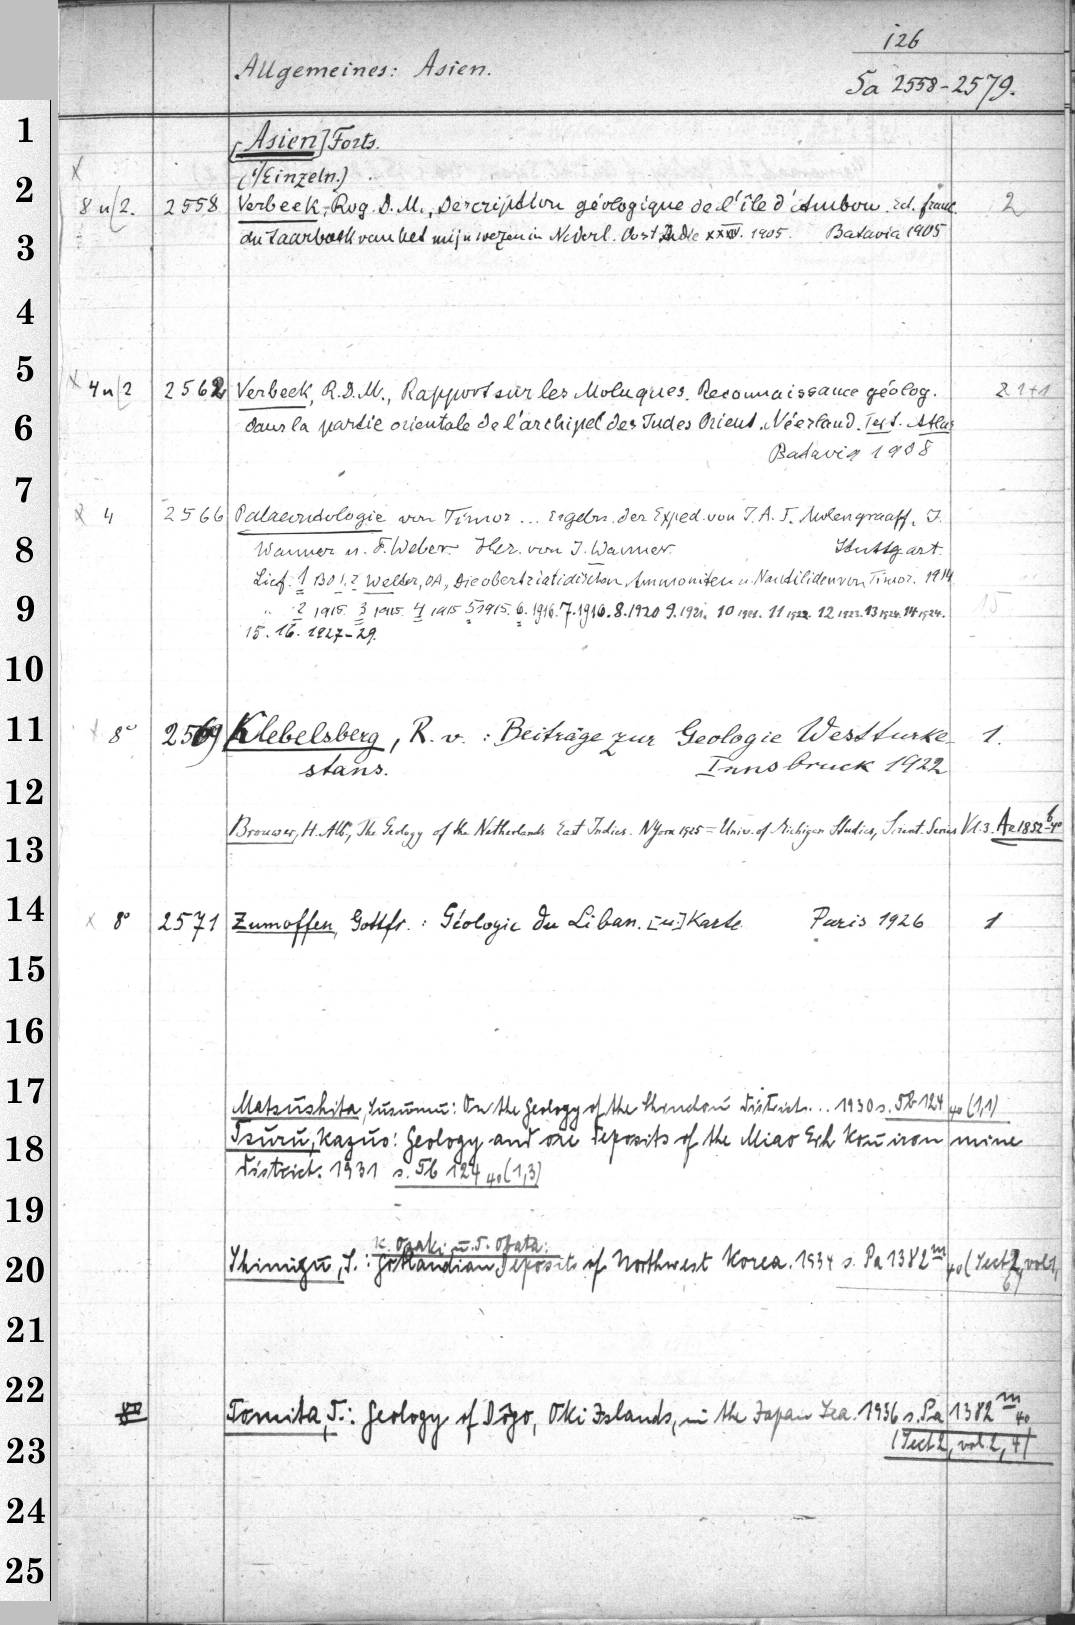 126
Allgemeines: Asien.
Sa 2558-2579.
1
[Asien] Forts.
2
(Einzeln.)
8 u 2. 2558 Verbeek, Rog. D. M., Description géologique de l'île d'Ambon. Ed. franç. 2
3
du Jaarboek van het mijnwezen in Nederl. Oost Indie XXXIV. 1905. Batavia 1905
4
5
4 u 2 2562 Verbeek, R. D. M., Rapport sur les Moluques. Reconnaissance géolog. 2 1+1
6
dans la partie orientale de l'archipel des Indes Orient. Néerland. Text. Atlas
Batavia 1908
7
4 2566 Palaeontologie von Timor ... Ergebn. der Exped. von J. A. F. Molengraaff, J.
8
Wanner u. F. Weber Her. von J. Wanner. Stuttgart.
Lief. 1 1, 2 Welter, OA, Die obertriadischen Ammoniten u. Nautiliden von Timor. 1914
9
" 2 1915. 3 1915. 4 1915 5 1915. 6. 1916. 7. 1916. 8. 1920 9. 1921. 10 1921. 11 1922. 12 1923. 13 1924. 14 1924. 15
15. 16. 1927-29.
10
11
8° 2569 Klebelsberg, R. v. : Beiträge zur Geologie Westturke- 1.
stans. Innsbruck 1922
12
13
Brouwer, H. Alb., The Geology of the Netherlands East Indies. NYork 1925 = Univ. of Michigan Studies, Scient. Series Vol. 3. Az 1852 b 4°
14
8° 2571 Zumoffen, Gottfr. : Géologie du Liban. [u] Karte. Paris 1926 1
15
16
17
Matsushita, Susumu: On the Geology of the district... 1930 s. Sb 124 4° (1,1)
18
Tsuru, Kazuo: Geology and ore deposits of the Miao Erh Kou iron mine
district. 1931 s. Sb 124 4° (1,3)
19
K. Ozaki u. T. Obata:
20
Shimizu, S. : Gotlandian Deposits of Northwest Korea. 1934 s. Pa 1382 m 4° (Sect 2, vol 1,
6)
21
22
8° Tomita, T.: Geology of Dôgo, Oki Islands, in the Japan Sea. 1936 s. Pa 1382 m 4°
23
(Sect 2, vol. 2, 4)
24
25